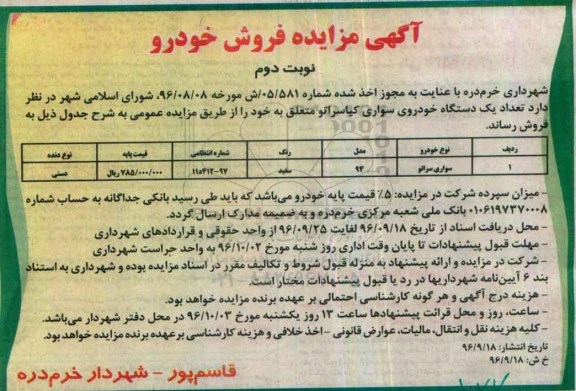 آگهی مزایده فروش خودرو
نوبت دوم
شهرداری خرم‌دره با عنایت به مجوز اخذ شده شماره ۰۵/۵۸۱/ش مورخه ۹۶/۰۸/۰۸، شورای اسلامی شهر در نظر
دارد تعداد یک دستگاه خودروی سواری کیاسراتو متعلق به خود را از طریق مزایده عمومی به شرح جدول ذیل به
فروش رساند.
ردیف نوع خودرو مدل رنگ شماره انتظامی قیمت پایه نوع دنده
۱ سواری سراتو ۹۴ سفید ۹۷-۴۱۲ ۷۸۵/۰۰۰/۰۰۰ ریال دستی
- میزان سپرده شرکت در مزایده: ۵٪ قیمت پایه خودرو می‌باشد که باید طی رسید بانکی جداگانه به حساب شماره
۰۱۰۶۱۹۷۳۷۰۰۰۸ بانک ملی شعبه مرکزی خرم‌دره و به ضمیمه مدارک ارسال گردد.
- محل دریافت اسناد از تاریخ ۹۶/۰۹/۱۸ لغایت ۹۶/۰۹/۲۵ از واحد حقوقی و قراردادهای شهرداری
- مهلت قبول پیشنهادات تا پایان وقت اداری روز شنبه مورخ ۹۶/۱۰/۰۲ به واحد حراست شهرداری
- شرکت در مزایده و ارائه پیشنهاد به منزله قبول شروط و تکالیف مقرر در اسناد مزایده بوده و شهرداری به استناد
بند ۶ آیین‌نامه شهرداریها در رد یا قبول پیشنهادات مختار است.
- هزینه درج آگهی و هر گونه کارشناسی احتمالی بر عهده برنده مزایده خواهد بود.
- ساعت، روز و محل قرائت پیشنهادها ساعت ۱۳ روز یکشنبه مورخ ۹۶/۱۰/۰۳ در محل دفتر شهردار می‌باشد.
- کلیه هزینه نقل و انتقال، مالیات، عوارض قانونی - اخذ خلافی و هزینه کارشناسی بر عهده برنده مزایده خواهد بود.
تاریخ انتشار: ۹۶/۹/۱۸
خ ش: ۹۶/۹/۱۸
قاسم‌پور - شهردار خرم‌دره